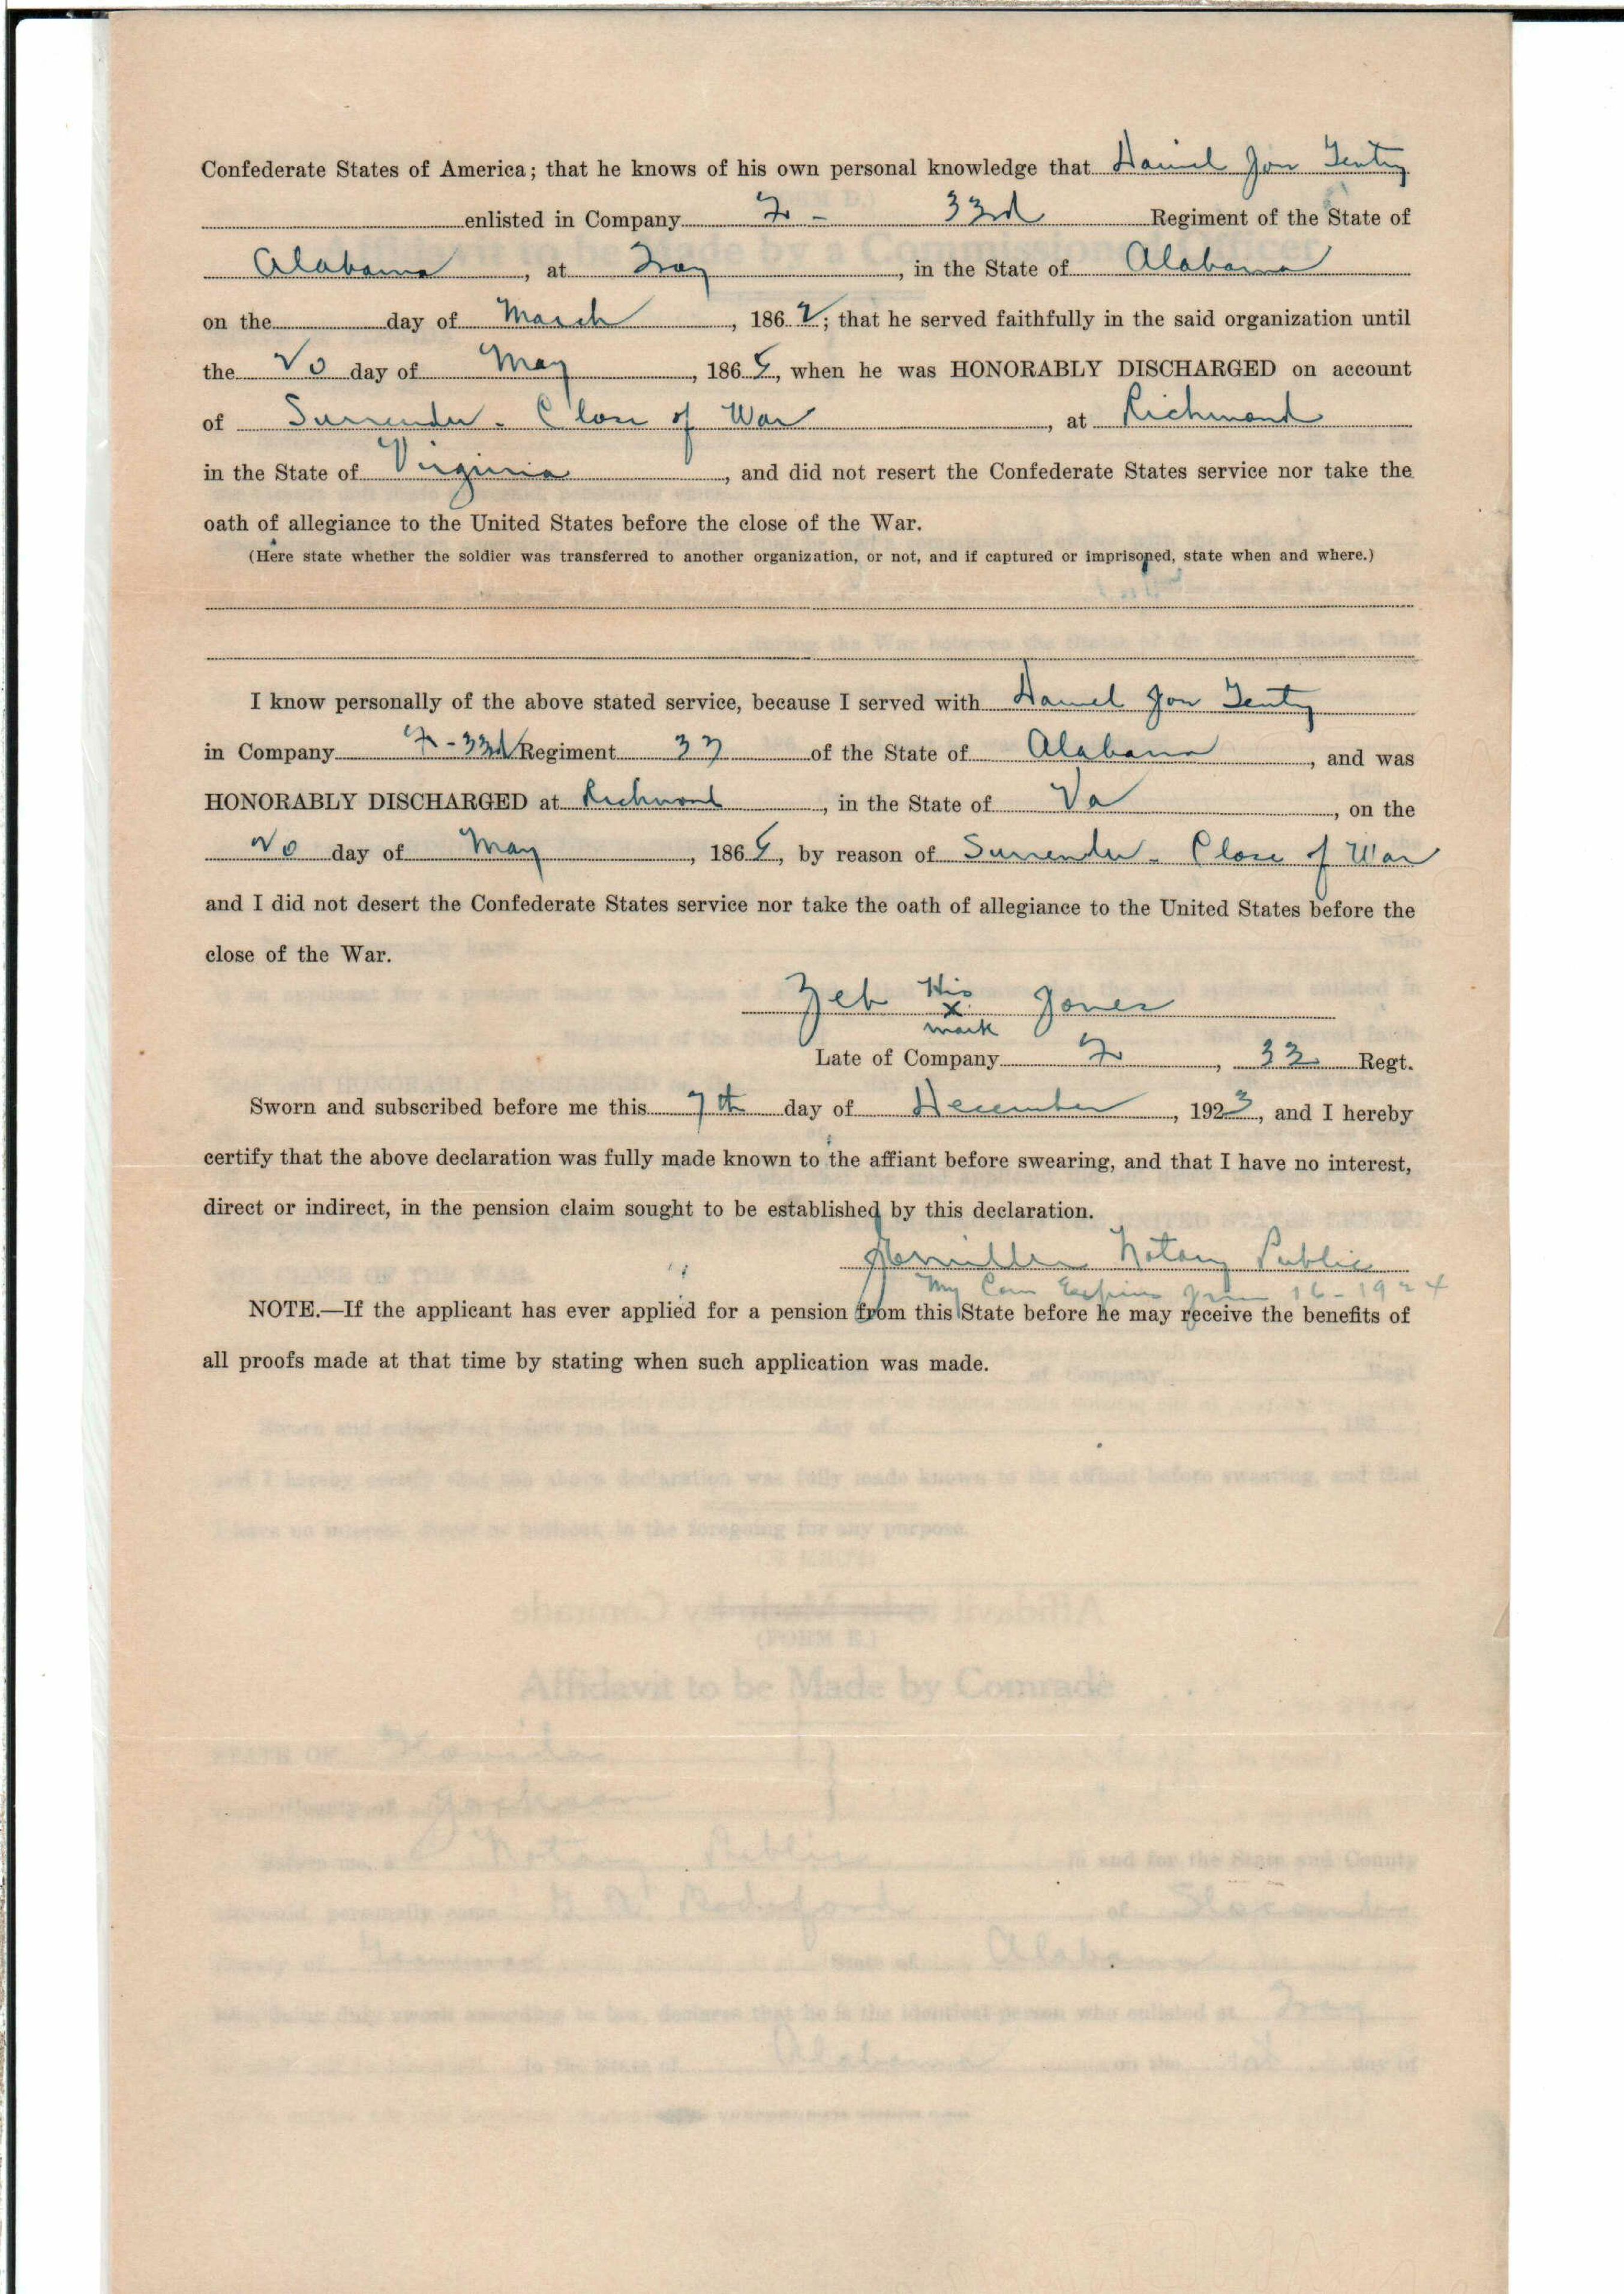 Confederate States of America; that he knows of his own personal knowledge that Daniel Jon Gentry
enlisted in Company F - 33rd Regiment of the State of
Alabama, at Troy, in the State of Alabama
on the day of March, 1862; that he served faithfully in the said organization until
the 20 day of May, 1865, when he was HONORABLY DISCHARGED on account
of Surrender - Close of War, at Richmond
in the State of Virginia, and did not resert the Confederate States service nor take the
oath of allegiance to the United States before the close of the War.
(Here state whether the soldier was transferred to another organization, or not, and if captured or imprisoned, state when and where.)
I know personally of the above stated service, because I served with Daniel Jon Gentry
in Company F - 33rd Regiment 33 of the State of Alabama, and was
HONORABLY DISCHARGED at Richmond, in the State of Va, on the
20 day of May, 1865, by reason of Surrender - Close of War
and I did not desert the Confederate States service nor take the oath of allegiance to the United States before the
close of the War.
Zeb His x mark Jones
Late of Company F, 33 Regt.
Sworn and subscribed before me this 7th day of December, 1923, and I hereby
certify that the above declaration was fully made known to the affiant before swearing, and that I have no interest,
direct or indirect, in the pension claim sought to be established by this declaration.
Notary Public
My Com Expires 16-1924
NOTE.—If the applicant has ever applied for a pension from this State before he may receive the benefits of
all proofs made at that time by stating when such application was made.
Affidavit to be Made by Comrade